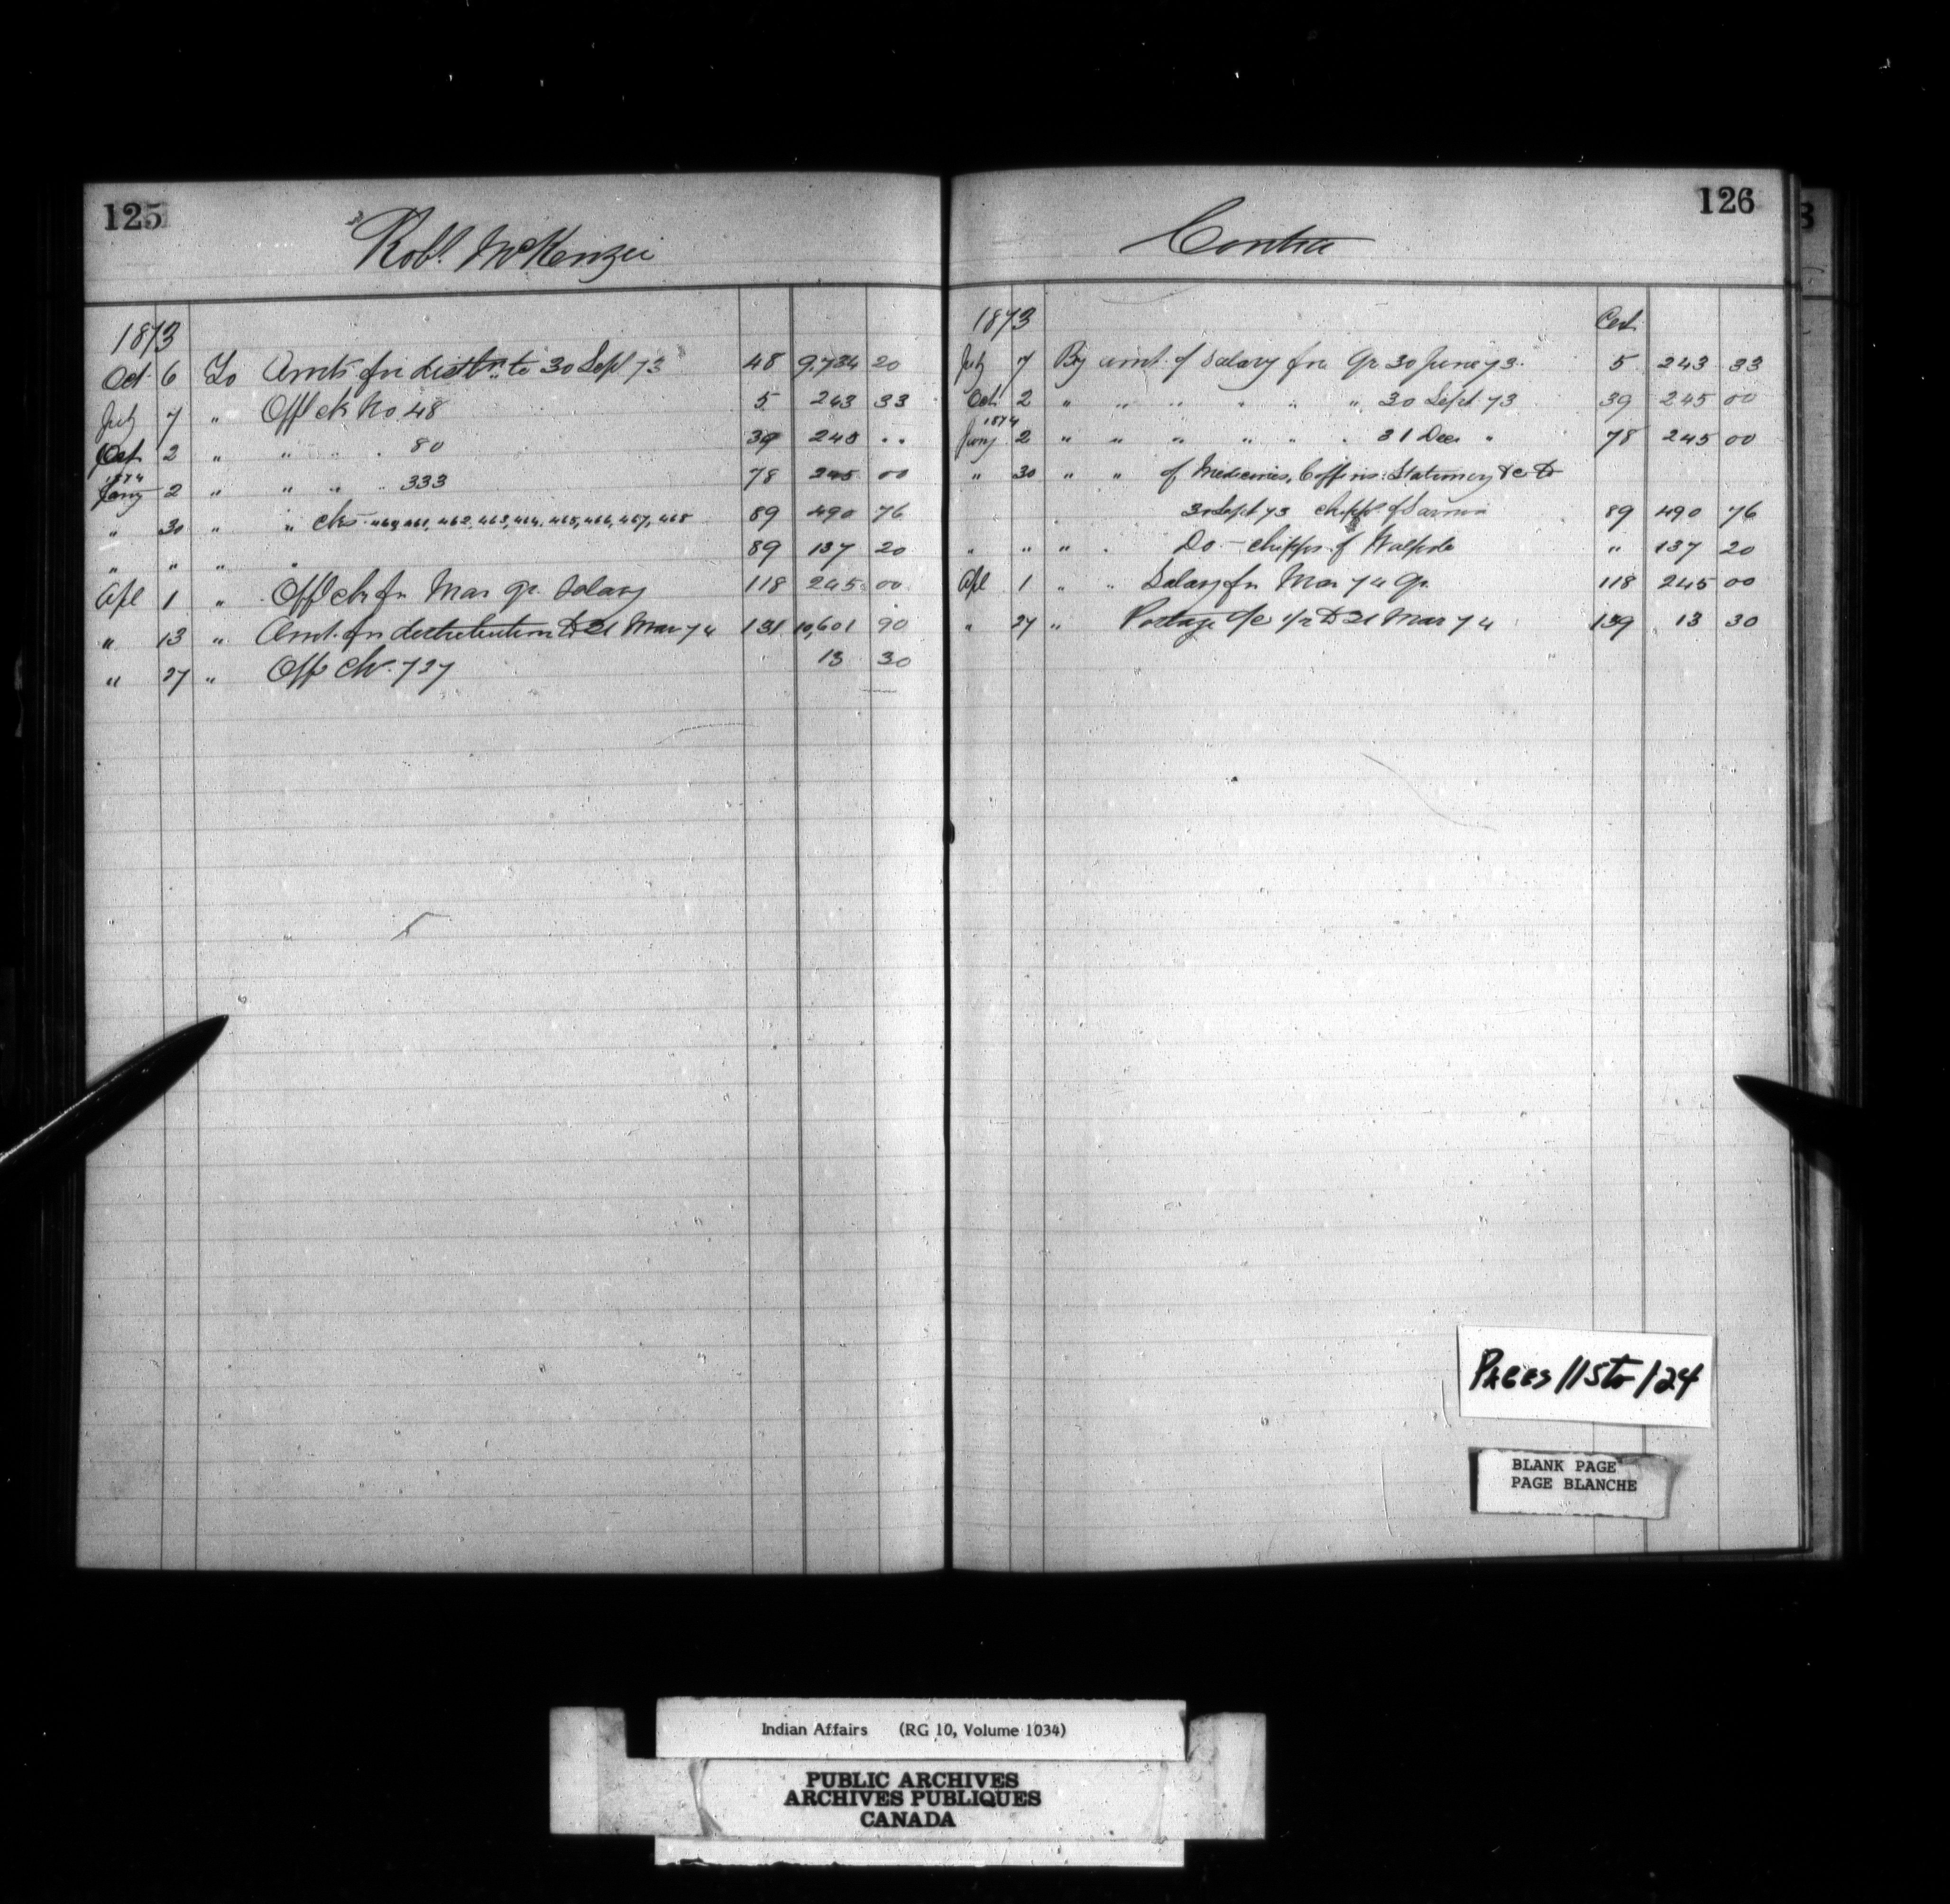 125
Robt. McKenzie
1873
Oct 6 To Amts for distbn to 30 Sept 73 48 9,734 20
July 7 " Offl ck No 48 5 243 33
Oct 2 " " " . 80 39 245 ..
1874
Jany 2 " " " " 333 78 245 00
" 30 " " cks 460, 461, 462, 463, 464, 465, 466, 467, 468 89 490 76
" " " " 89 137 20
Apl 1 " Offl ck for Mar qr. Salary 118 245 00
" 13 " Amt. for distribution to 31 Mar 74 131 10,601 90
" 27 " Off ck. 727 13 30
126
Contra
1873 Cert.
July 7 By amt. of Salary for Qr 30 June 73. 5 243 33
Oct 2 " " " " " " 30 Sept 73 39 245 00
1874
Jany 2 " " " " " . 31 Decr " 78 245 00
" 30 " " of Medicines, Coffins, Stationery &c to
30 Sept 73 Chipps of Sarnia 89 490 76
" " " . Do - Chipps of Walpole " 137 20
Apl 1 " " Salary for Mar 74 Qr. 118 245 00
" 27 " Postage a/c 1/2 to 31 Mar 74 139 13 30
PAGES 115 to 124
BLANK PAGE
PAGE BLANCHE
Indian Affairs (RG 10, Volume 1034)
PUBLIC ARCHIVES
ARCHIVES PUBLIQUES
CANADA